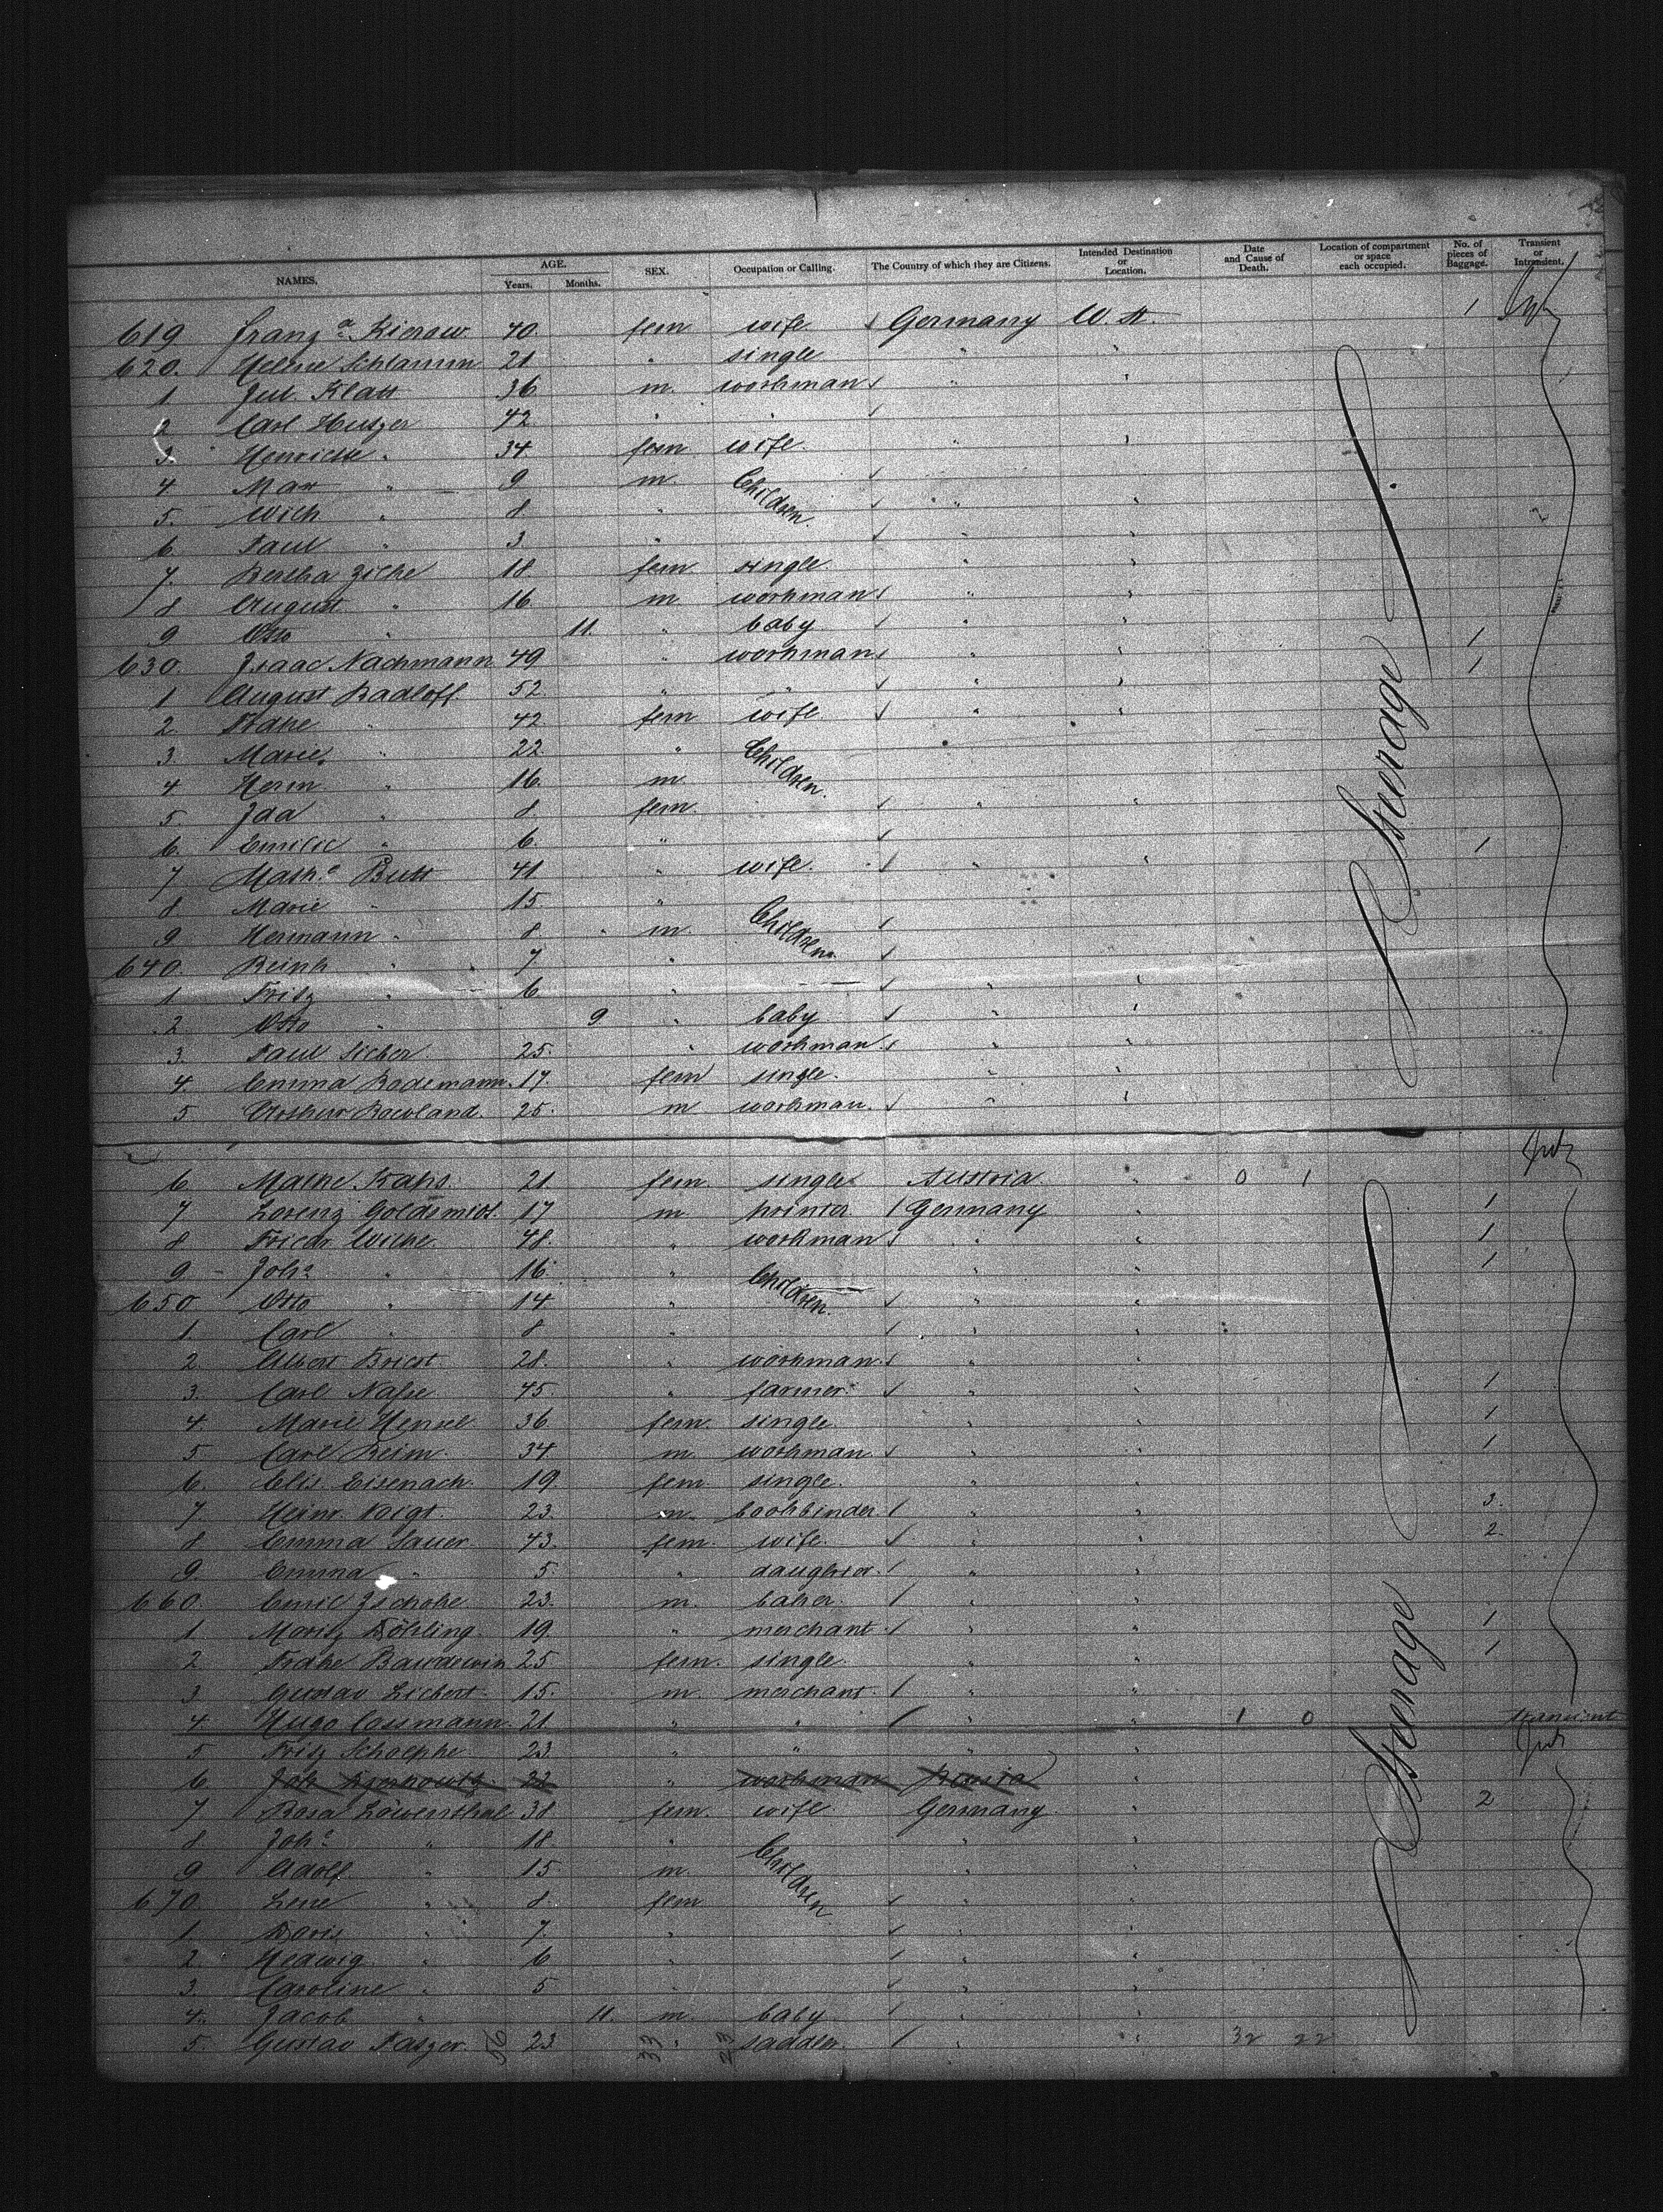 NAMES. AGE. Years. Months. SEX. Occupation or Calling. The Country of which they are Citizens. Intended Destination or Location. Date and Cause of Death. Location of compartment or space each occupied. No. of pieces of Baggage. Transient or Intransient.
619 Franz.ᵃ Kierow. 40. fem wife Germany W. St. 1
620. Helene Schlamm 21 " single " "
1 Jul. Klatt 36 m. workman " "
2 Carl Hutzer 42 " "
3. Henriette " 34 fem wife. " "
4 Max " 9 m. Children
5. Wilh " 8 " " "
6. Paul " 3 " " "
7. Bertha Zilke 18. fem single "
8 August " 16 m workman " "
9 Otto " 11. " baby " "
630. Isaac Nachmann 49 " workman " " 1
1 August Radloff. 52. " " " " 1
2 " 42 fem wife " "
3. Marie. " 22 " Children.
4 Herm. " 16. m.
5 Ida " 8. fem. " "
6. Emilie " 6. "
7 Math.ᵉ Butt 41 " wife. " " 1
8 Marie " 15. "
9 Hermann " 8 m Children
640. Reinh " 7 "
1 Fritz " 6 " " "
2. Otto " 9 " baby " "
3. Paul Sieber. 25. " workman. " "
4 Emma Rodemann. 17. fem single. " "
5. Arthur Rowland. 25. m workman. " "
6 21 fem. single Austria " 0 1
7 Lorenz Goldsmidt. 17 m. printer Germany " 1
8 Friedr Wilke 48. " workman " " 1
9 Joh.ˢ " 16. " Children. " " 1
650. Otto " 14. " " "
1. Carl " 8 " " "
2. Albert Briest 28. " workman. " "
3. Carl 45. " farmer. " " 1
4. Marie Hensel 36 fem. single. " " 1
5. Carl Reim. 34 m. workman " " 1
6. Elis. Eisenach. 19 fem. single. "
7. Heinr Voigt. 23. m. bookbinder " " 3.
8 Emma Sauer 43. fem. wife. " " 2.
9. Emma " 5. " daughter. " "
660. Emil Zschoke 23. m. baker. " "
1 Moritz Döhling. 19. " merchant " " 1
2. Baudewin 25 fem. single. " " 1
3. Gustav Liebert. 15. m. merchant. " "
4. Hugo Cossmann. 21. " " " 1 0 transient
5 Fritz Schoepke 23 " "
6. 22 " workman Russia "
7 Rosa Löwensthal 38 fem. wife. Germany. " 2
8 Joh.ᵉ " 18. " Children " "
9 Adolf. " 15 m. " "
670. Lene " 8. fem " "
1. Doris " 7. " " "
2. Hedwig " 6 " " "
3. Caroline " 5 " " "
4. Jacob " 11. m. baby " "
5. Gustav 23 " " " 32 22
56 33 23
Steerage
Steerage